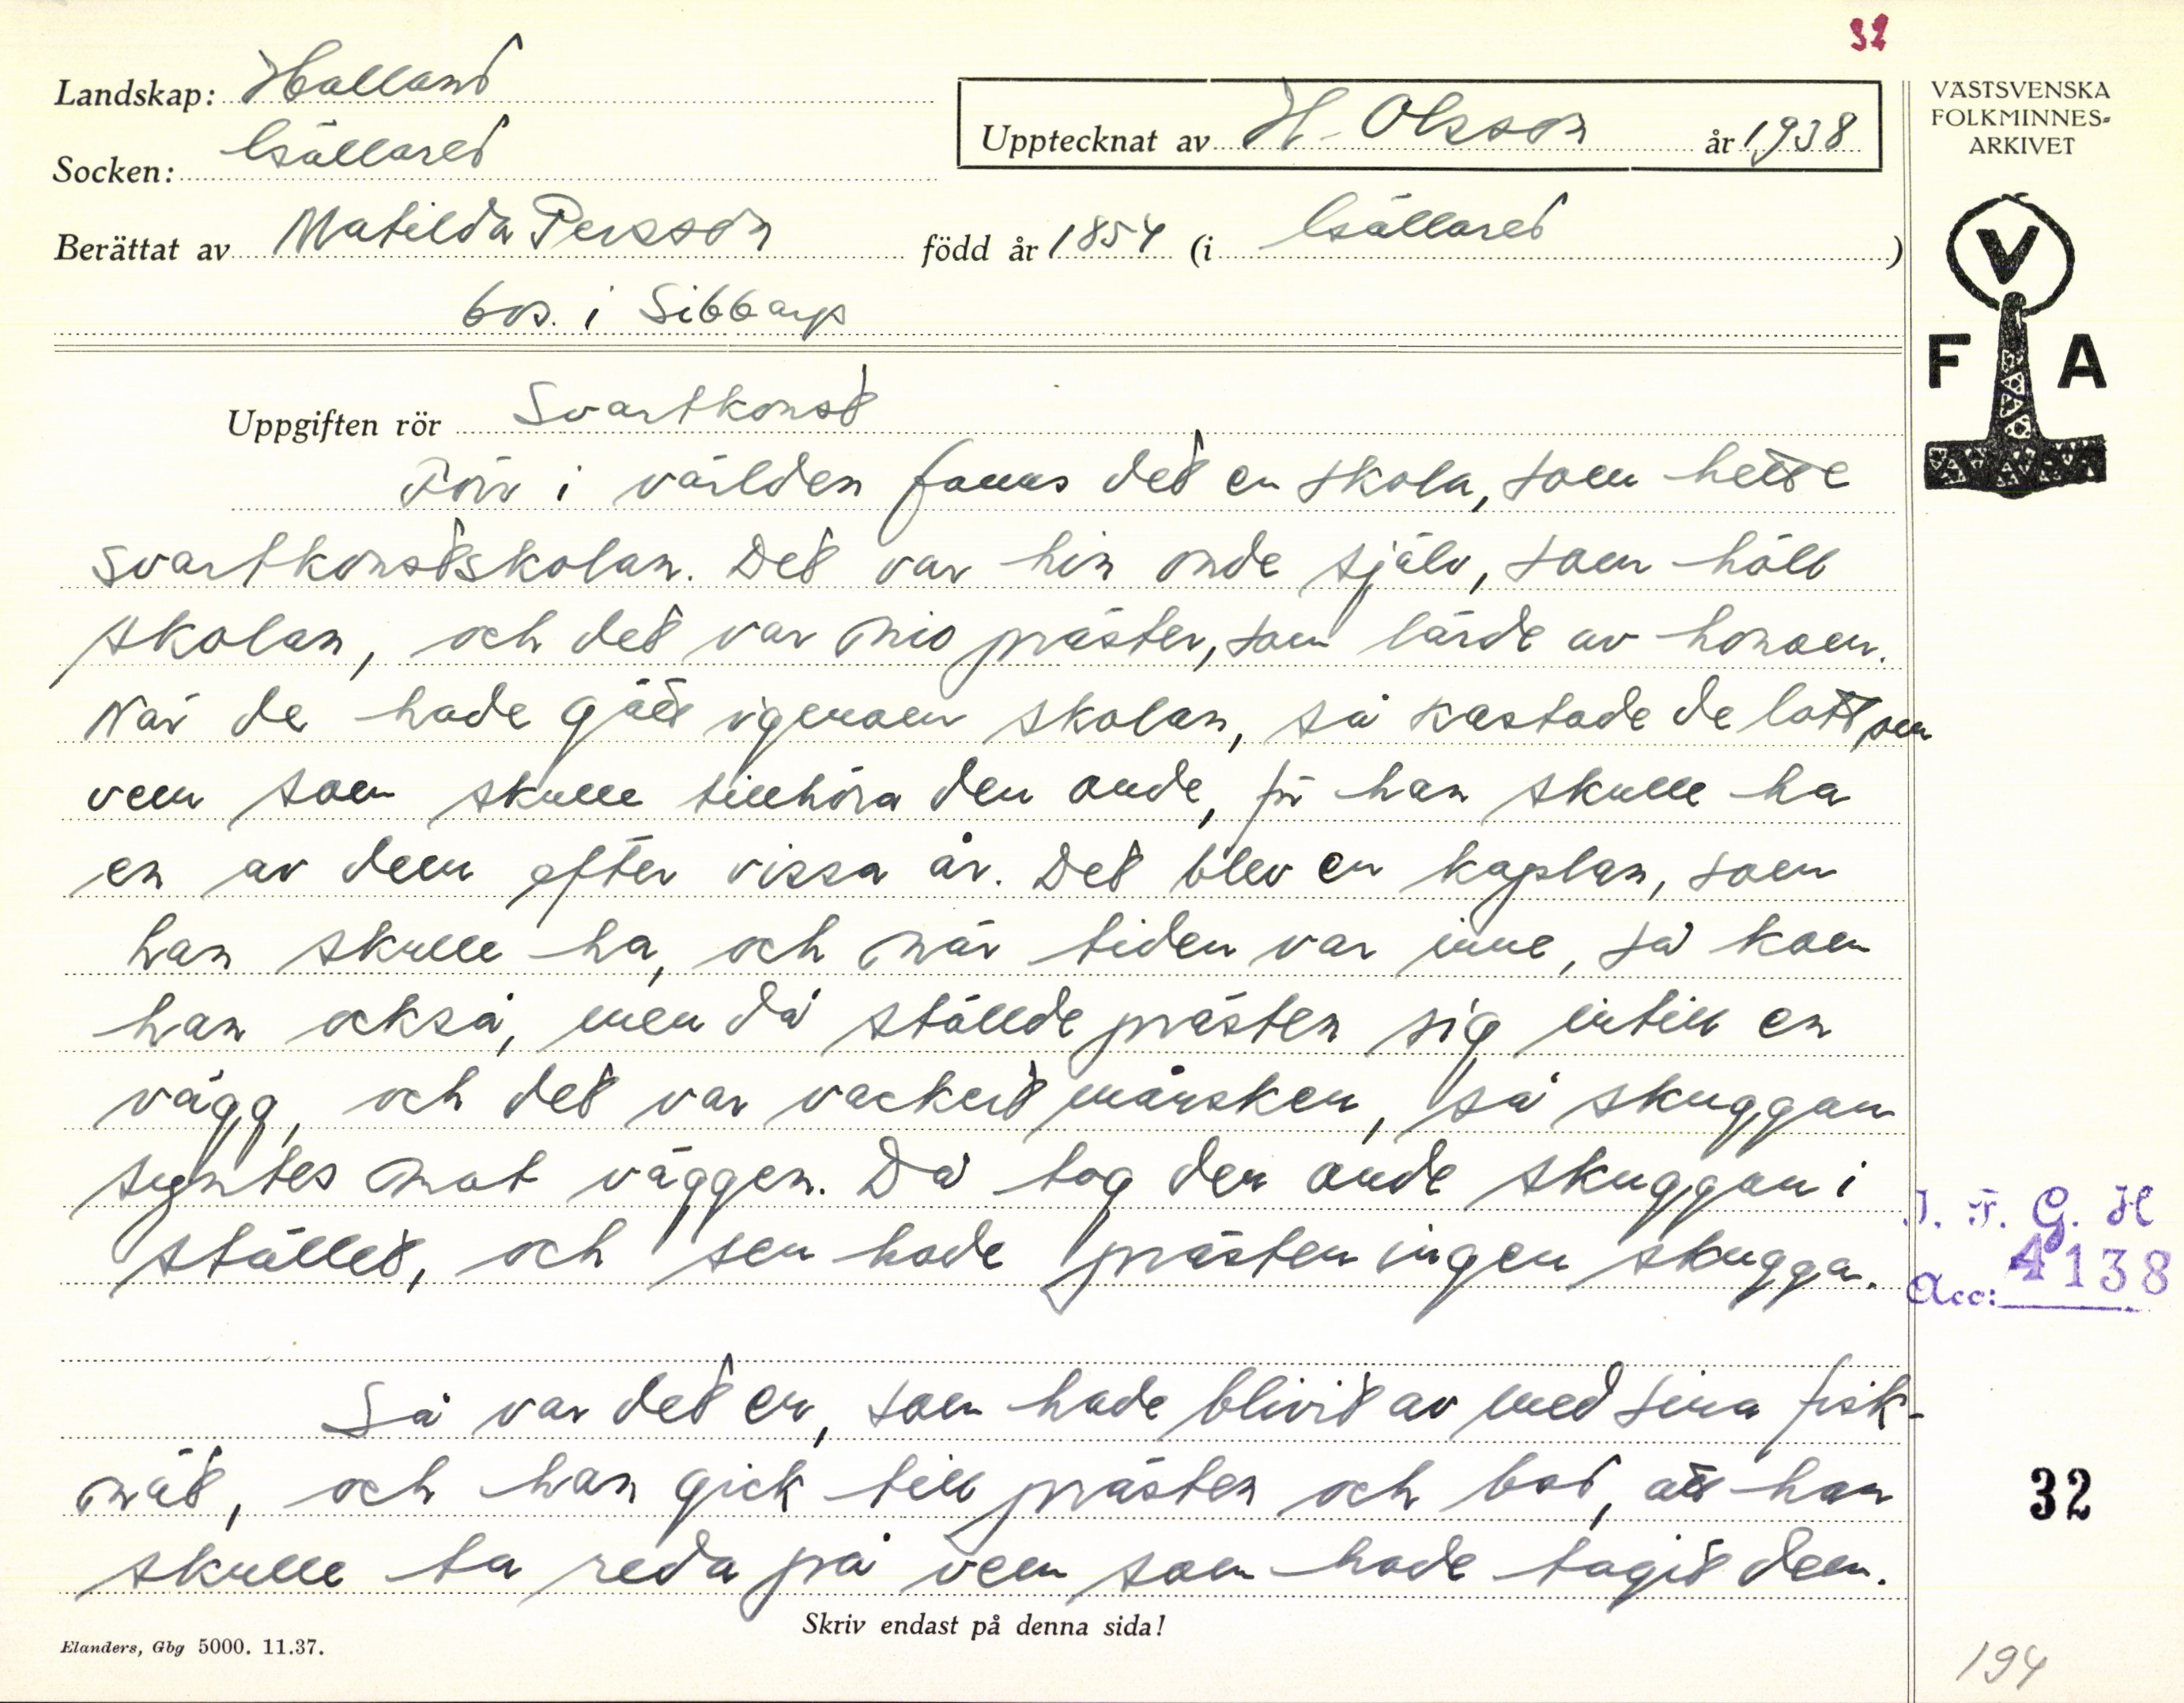 32
Landskap: Halland
Socken: Källared
Upptecknat av H. Olsson år 1938
Berättat av Matilda Persson född år 1854 (i Källared)
bos. i Sibbarp
VÄSTSVENSKA
FOLKMINNES-
ARKIVET
V
F A
Uppgiften rör Svartkonst
Förr i världen fanns det en skola, som hette
svartkonstskolan. Det var hin onde själv, som höll
skolan, och det var nio präster, som lärde av honom.
När de hade gått igenom skolan, så kastade de lott om
vem som skulle tillhöra den onde, för han skulle ha
en av dem efter vissa år. Det blev en kaplan, som
han skulle ha, och när tiden var inne, så kom
han också, men då ställde prästen sig intill en
vägg, och det var vackert månsken, så skuggan
syntes mot väggen. Då tog den onde skuggan i
stället, och sen hade prästen ingen skugga.
I. F. G. H
Acc: 4138
Så var det en, som hade blivit av med sina fisk-
nät, och han gick till prästen och bad, att han
skulle ta reda på vem som hade tagit dem.
32
Skriv endast på denna sida!
Elanders, Gbg 5000. 11.37.
194